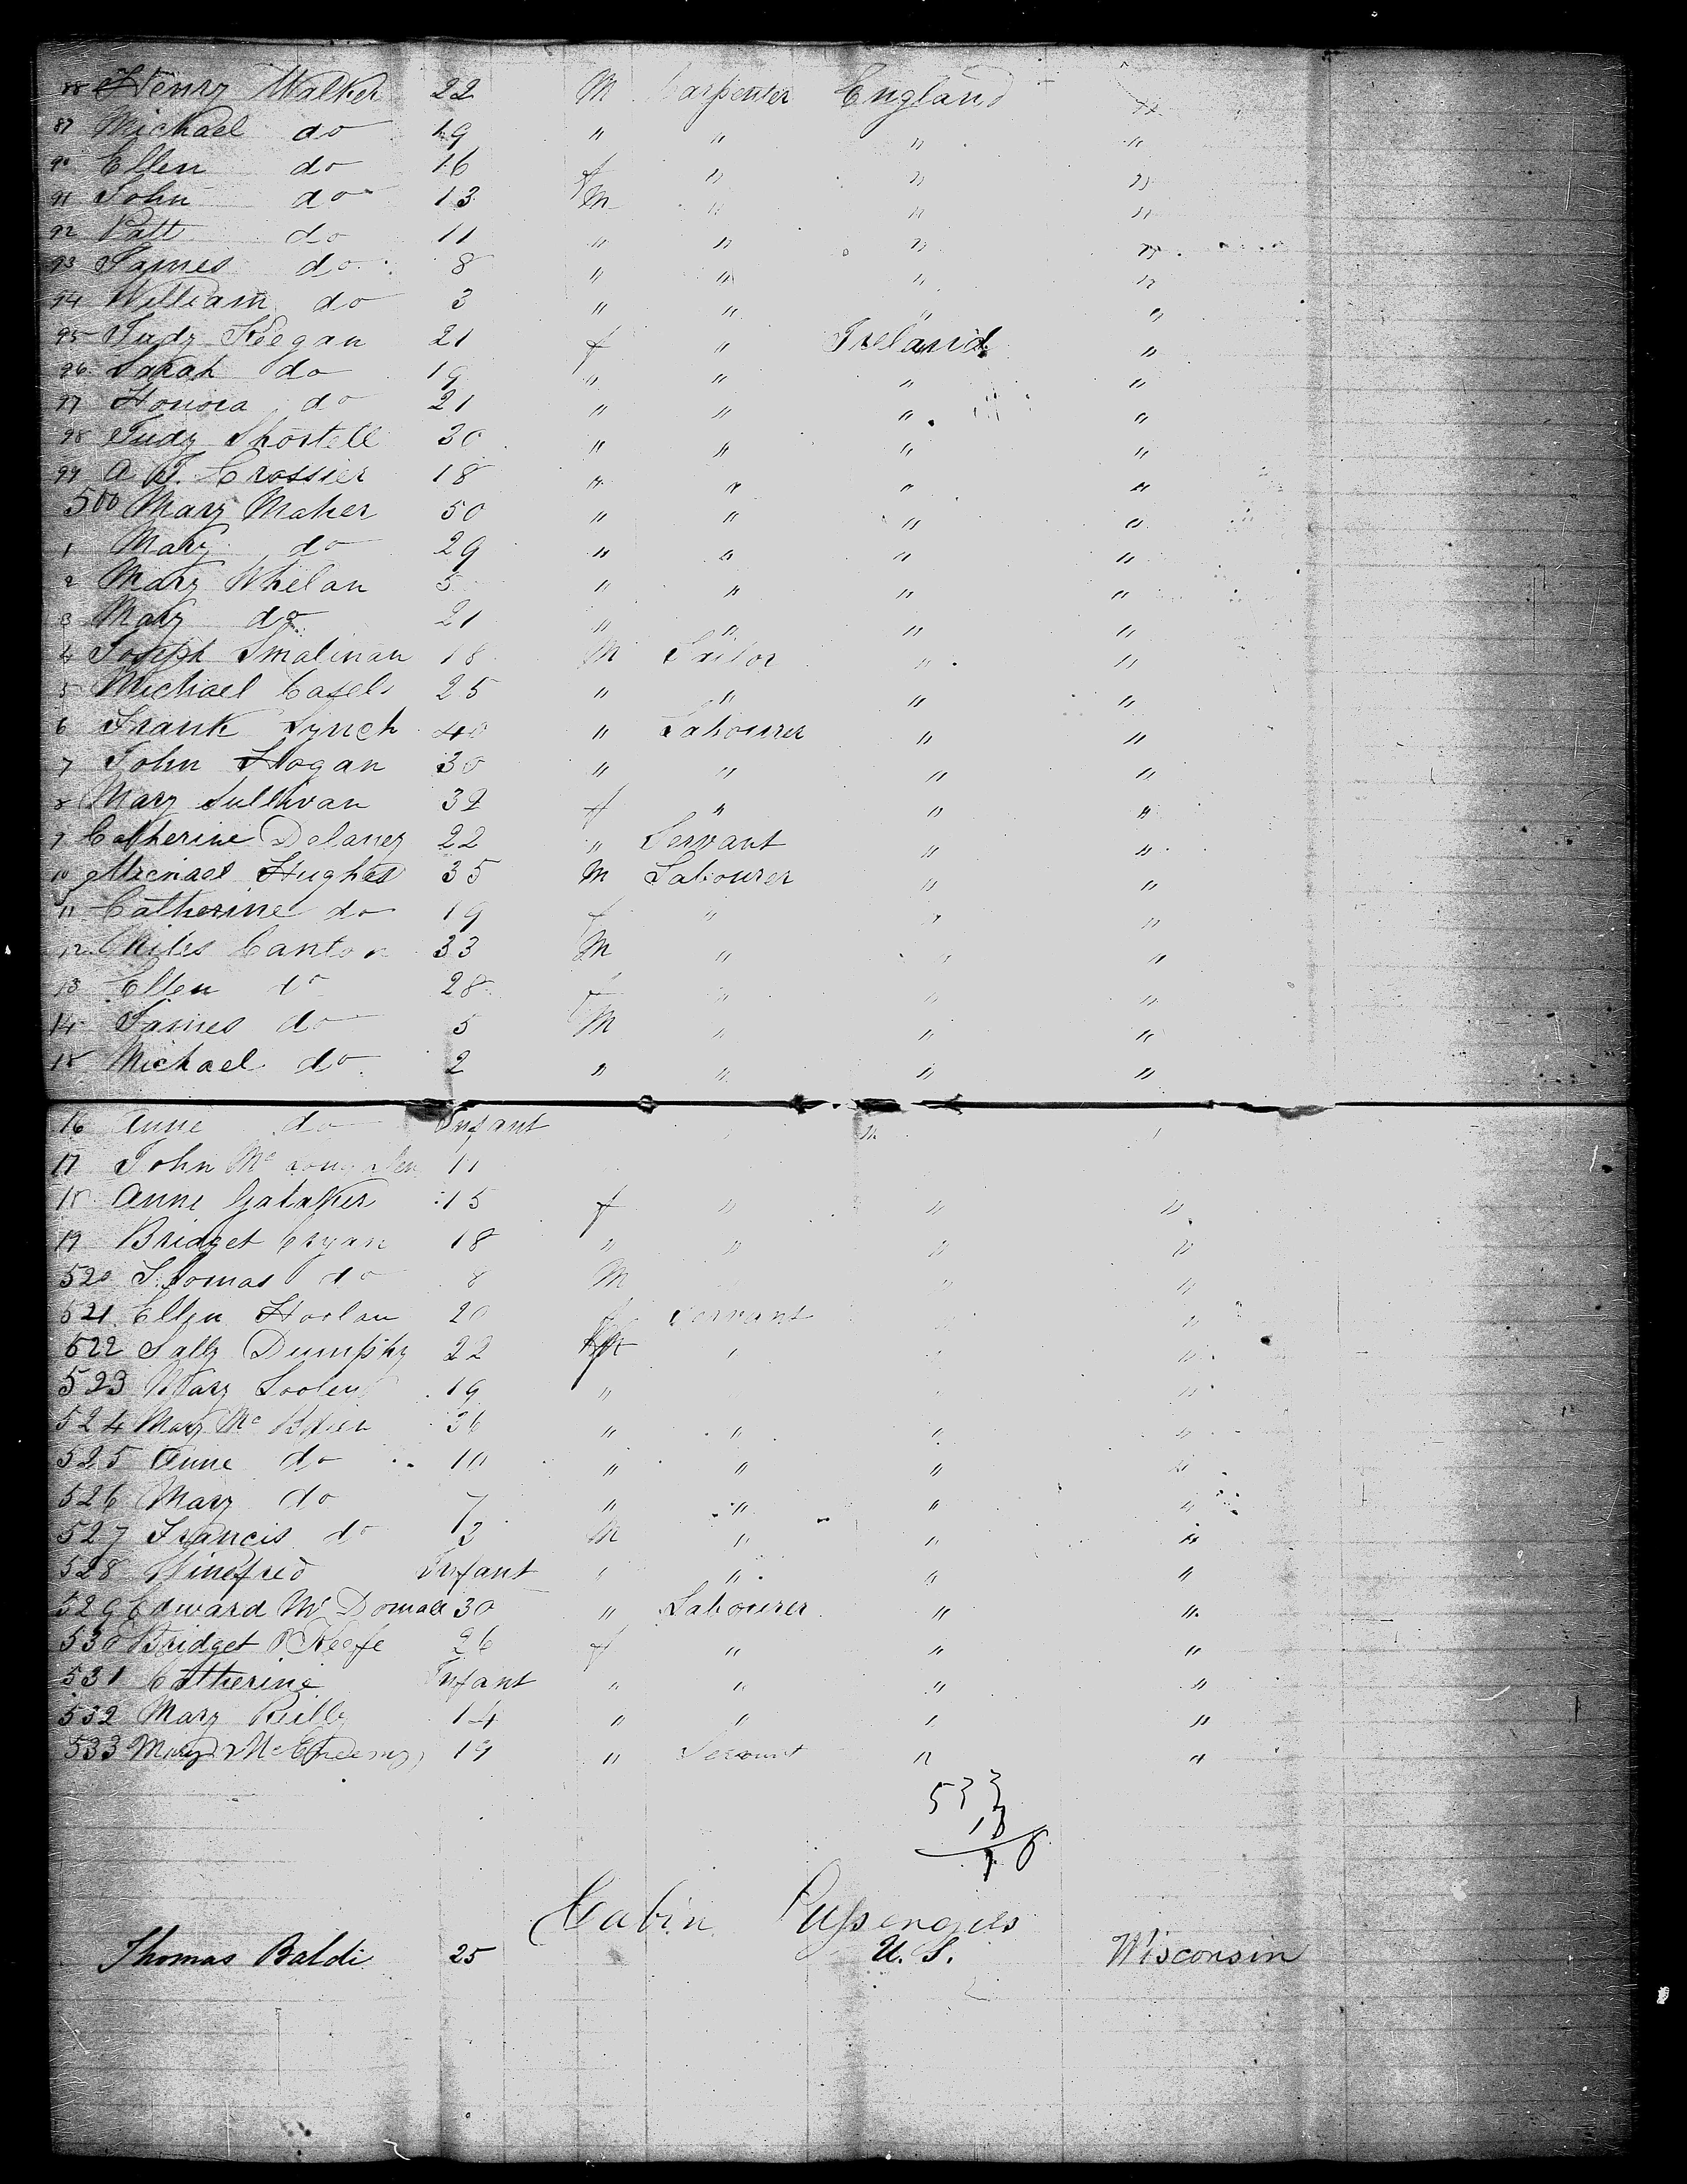 88 Henry Walker 22 M Carpenter England "
89 Michael do 19 " " " "
90 Ellen do 16 f " " "
91 John do 13 M " " "
92 Patt do 11 " " " "
93 James do 8 " " " "
94 William do 3 " " " "
95 Judy Keegan 21 f " Ireland "
96 Sarah do 19 " " " "
97 Honora do 21 " " " "
98 Judy Shostell 30 " " " "
99 A T. Crossier 18 " " " "
500 Mary Maher 50 " " " "
1 Mary do 29 " " " "
2 Mary Whelan 5 " " " "
3 Mary do 21 " " " "
4 Joseph Smalman 18 M Tailor " "
5 Michael Casels 25 " " " "
6 Frank Lynch 40 " Labourer " "
7 John Hogan 30 " " " "
8 Mary Sullivan 32 f " " "
9 Catherine Delaney 22 " Servant " "
10 Michael Hughes 35 M Labourer " "
11 Catherine do 19 f " " "
12 Miles Canton 33 M " " "
13 Ellen do 28 f " " "
14 James do 5 M " " "
15 Michael do 2 " " " "
16 Anne do Infant " " "
17 John Mc 11
18 Anne Galaher 15 f " " "
19 Bridget Cryan 18 " " " "
520 Thomas do 8 M " "
521 Ellen Hoolan 20 f Servant " "
522 Sally Dumphy 22 f " " "
523 Mary Loolen 19 " " "
524 Mary Mc Brien 36 " " " "
525 Anne do 10 " " " "
526 Mary do 7 " " " "
527 Francis do 3 M " " "
528 Winefred Infant " " " "
529 Edward Mc Donald 30 " Labourer " "
530 Bridget O Keefe 26 f " " "
531 Catherine Infant " " " "
532 Mary Reilly 14 " " " "
533 Mary 19 " Servant " "
533
Cabin Passengers
Thomas Baldi 25 U. S. Wisconsin